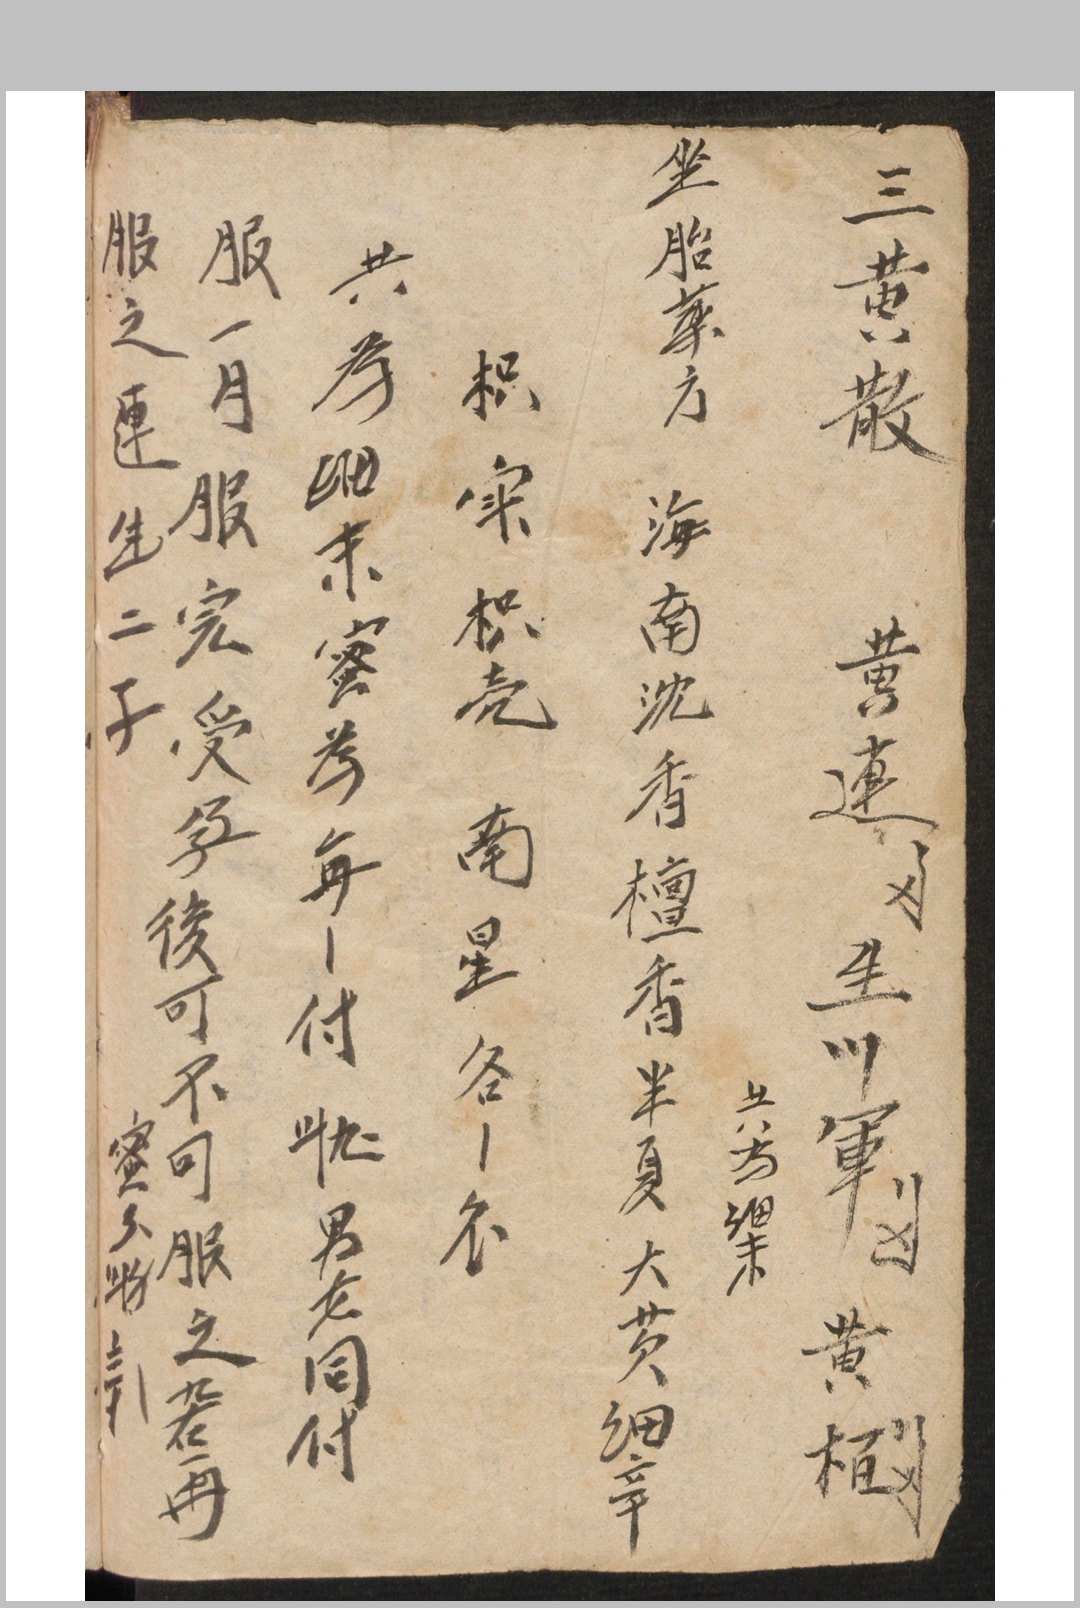 三黄散 黄連 生川軍 黄栢
共為細末
坐胎藥方 海南沈香 檀香 半夏 大黄 細辛
枳宲 枳壳 南星 各 一
共為細末蜜為 每一付 男女同付
服一月服完受孕後可不可服之若再
服之連生二子
蜜